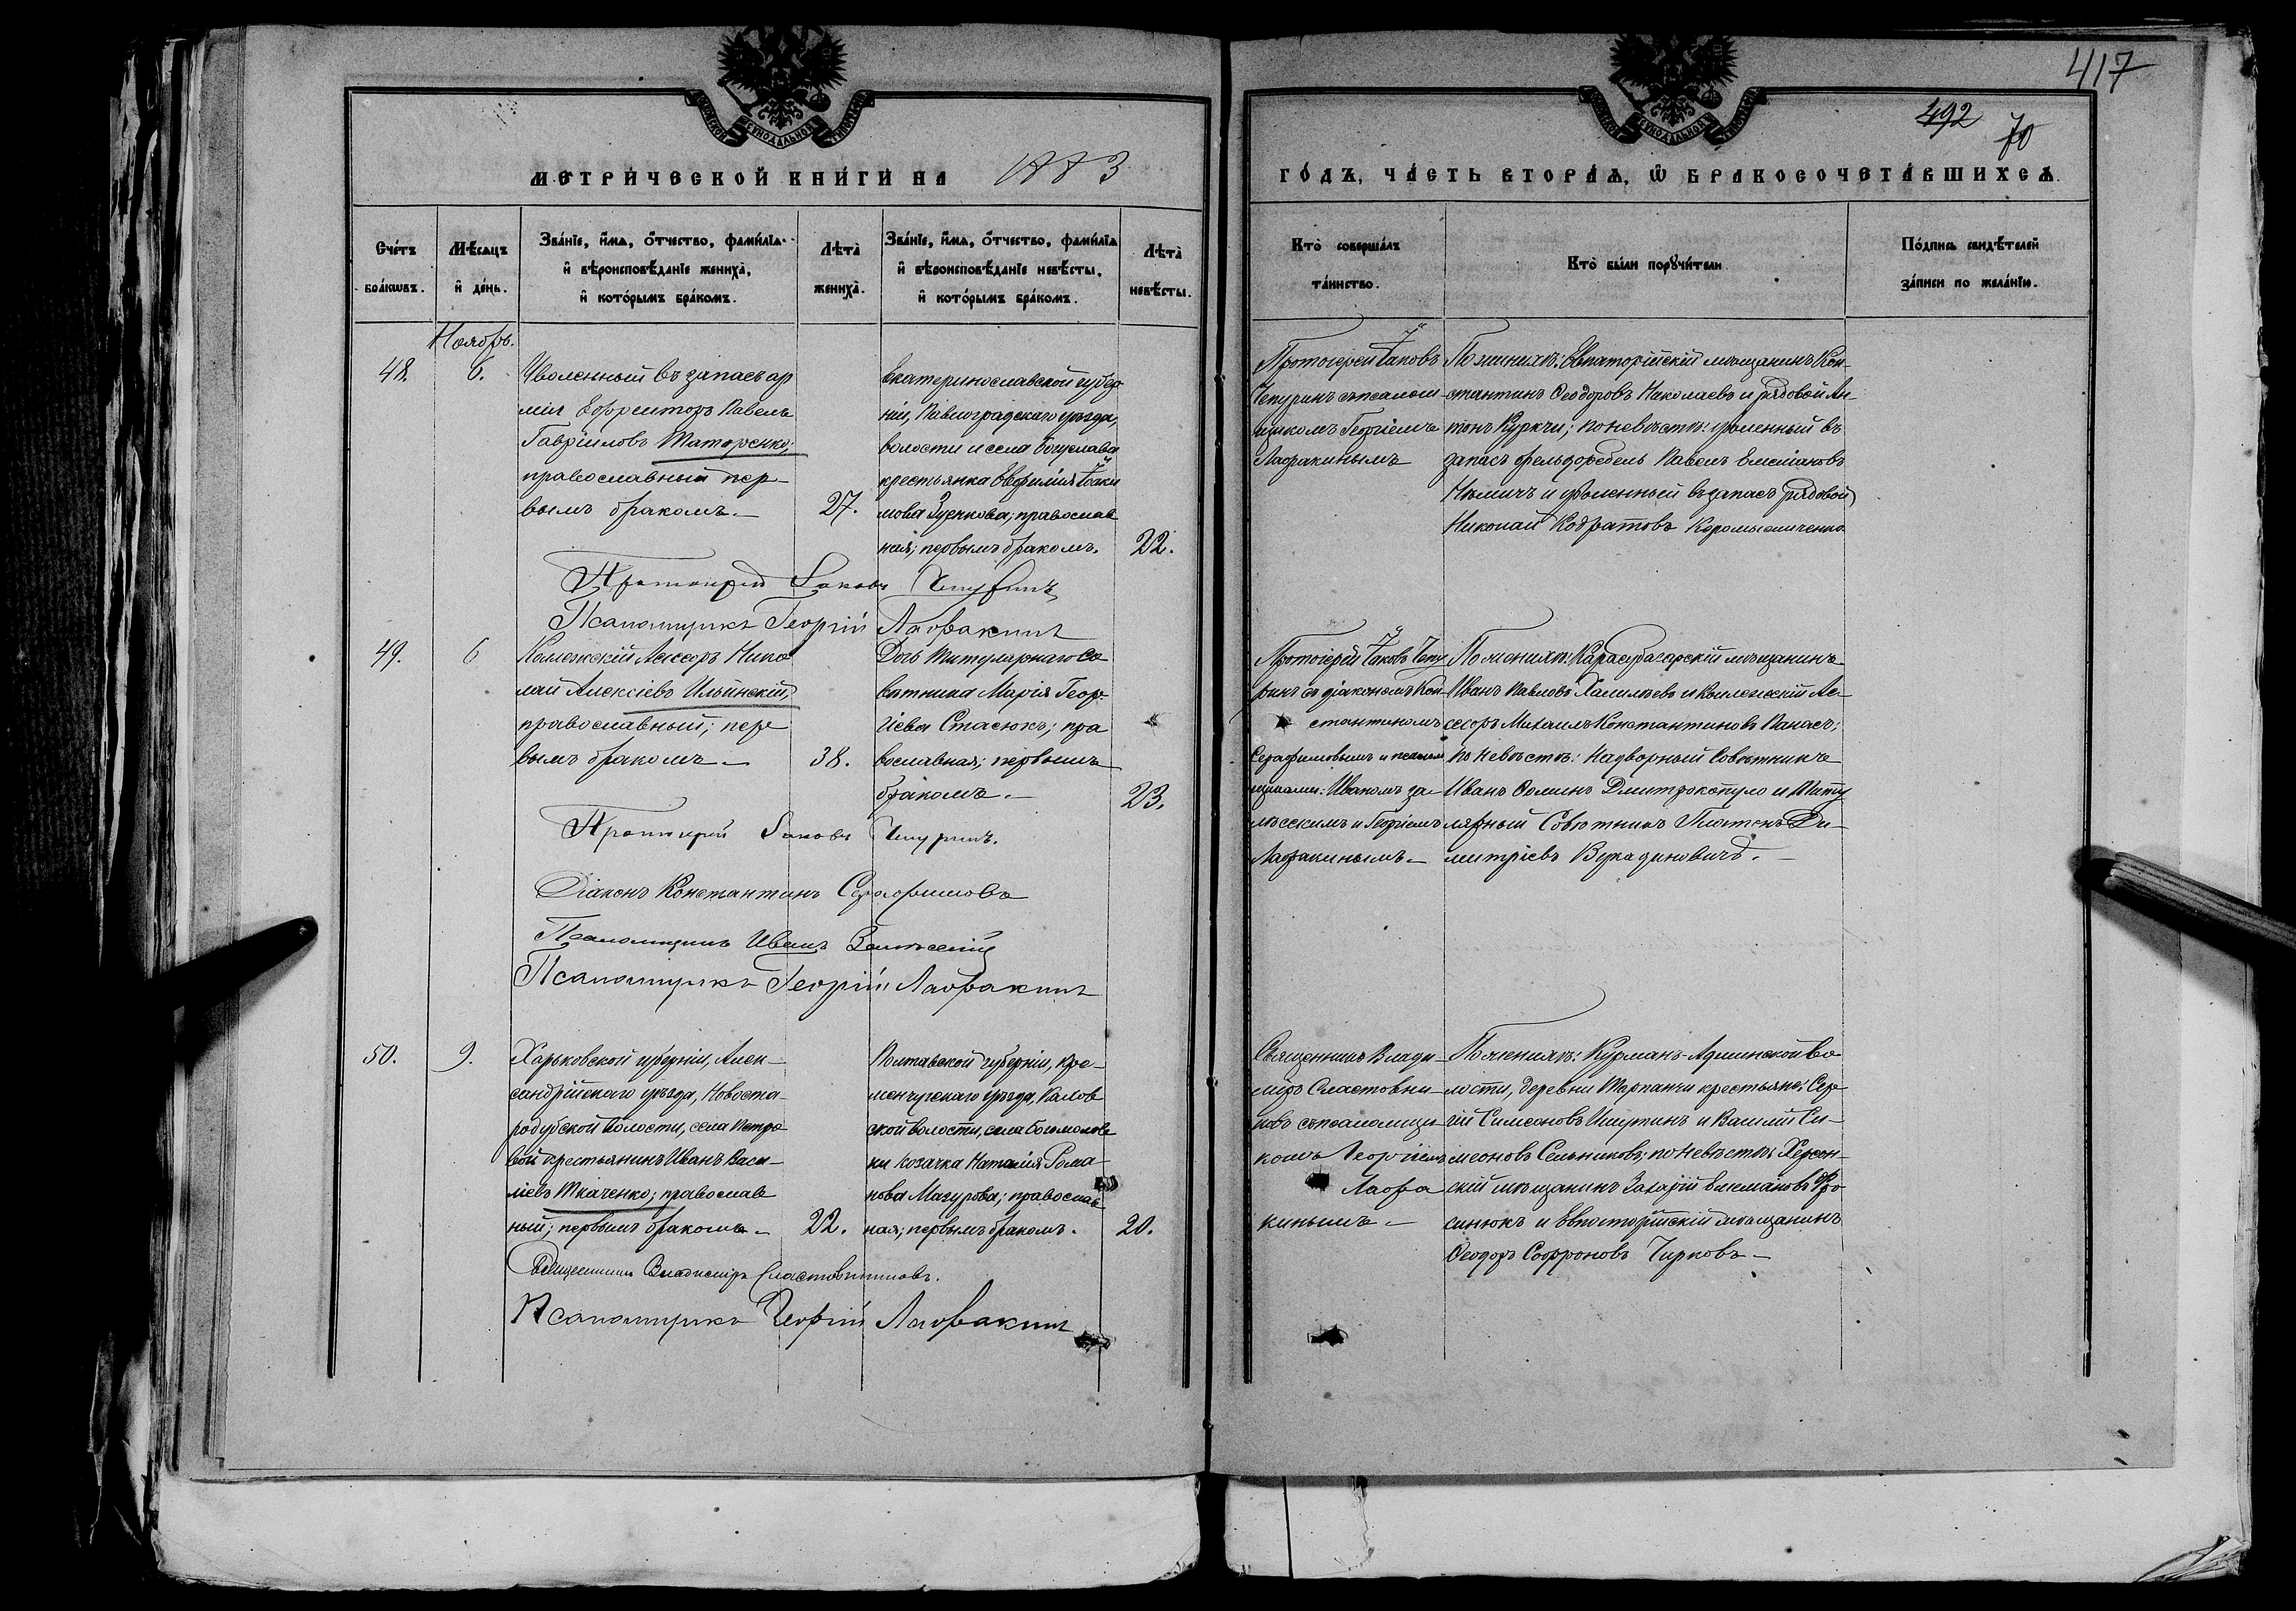 417
492
70
МЕТРИЧЕСКОЙ КНИГИ НА 1883
ГОДЪ, ЧАСТЬ ВТОРАЯ, Ѿ БРАКОСОЧЕТАВШИХСЯ.
Счетъ браковъ.
Мѣсяцъ и день.
Званіе, имя, отчество, фамилія
и вѣроисповѣданіе жениха,
и которымъ бракомъ.
Лѣта жениха.
Званіе, имя, отчество, фамилія
и вѣроисповѣданіе невѣсты,
и которымъ бракомъ.
Лѣта невѣсты.
Кто совершалъ
таинство.
Кто были поручители.
Подпись свидѣтелей
записи по желанію.
Ноябрь.
48.
6.
Уволенный въ запасъ ар
міи Ефрейторъ Павелъ
Гавріиловъ Татаренко;
православный пер-
вымъ бракомъ.-
27.
Екатеринославской губер
ніи, Павлоградскаго уѣзда,
волости и села Богуслава
крестьянка Евфимія Іоаки
мова; православ
ная; первымъ бракомъ.
22.
Протоіерей Іаковъ
Чепуринъ съ псалом-
щикомъ Георгіемъ
Лафакинымъ
По женихѣ: Евпаторійскій мѣщанинъ Кон-
стантинъ Ѳеодоровъ Николаевъ и рядовой Ан-
тонъ Куркчи; по невѣстѣ: уволенный въ
запасъ фельдфебель Павелъ Емеліановъ
и уволенный въ запасъ рядовой
Николай Кодратовъ Коромысличенко
Протоіерей Іаковъ Чепуринъ
Псаломщикъ Георгій Лафакинъ
49.
6
Коллежскій Ассесоръ Нико
лай Алексіевъ Ильинскій,
православный; пер
вымъ бракомъ-
38.
Дочь Титулярнаго Со
вѣтника Марія Геор
гіева Стасюкъ; пра
вославная; первымъ
бракомъ.-
23.
Протоіерей Іаковъ Чепу
ринъ съ діакономъ Кон
стантиномъ
Серафимовымъ и псалом
щиками: Иваномъ За-
лѣсскимъ и Георгіемъ
Лафакинымъ.-
По женихѣ: Карасубазарскій мѣщанинъ
Иванъ Павловъ Халилѣевъ и Коллежскій Ас-
сесоръ Михаилъ Константиновъ Панасъ;
по невѣстѣ: Надворный Совѣтникъ
Иванъ Ѳоминъ и Титу
лярный Совѣтникъ Платонъ Ди-
митріевъ Вукадиновичъ.-
Протоіерей Іаковъ Чепуринъ.
Діаконъ Константинъ Серафимовъ
Псаломщикъ Иванъ Залѣсскій
Псаломщикъ Георгій Лафакинъ
50.
9.
Харьковской губерніи, Алек-
сандрійскаго уѣзда, Новоста-
родубской волости, села Петро
вой крестьянинъ Иванъ Васи-
ліевъ Ткаченко; православ
ный; первымъ бракомъ-
22.
Полтавской губерніи, Кре-
менчугскаго уѣзда,
ской волости, села Богомолов
ки козачка Наталія Рома-
нова Мазурова; православ
ная; первымъ бракомъ.
20.
Священникъ Влади-
міръ Сластовни-
ковъ съ псаломщи
комъ Георгіемъ
Лафа
кинымъ-
По женихѣ: Курманъ-Аджинской во
лости, деревни Терпанчи крестьяне: Сер
гій Симеоновъ Ишутинъ и Василій Си-
меоновъ Сальниковъ; по невѣстѣ: Херсон-
скій мѣщанинъ Захарій
и Евпаторійскій мѣщанинъ
Ѳеодоръ Софроновъ Чирковъ-
Священникъ Владиміръ Сластовниковъ.
Псаломщикъ Георгій Лафакинъ